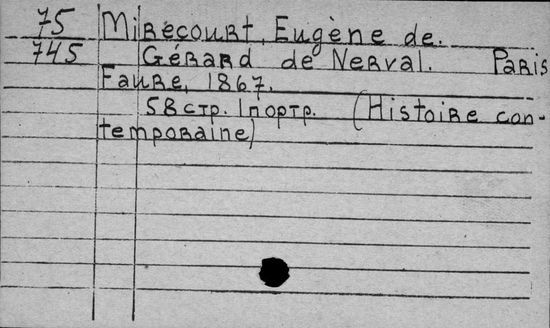 75 Mirecourt, Eugène de.
745 Gérard de Nerval. Paris
Faure, 1867.
58 стр. 1 портр. (Histoire con-
temporaine)